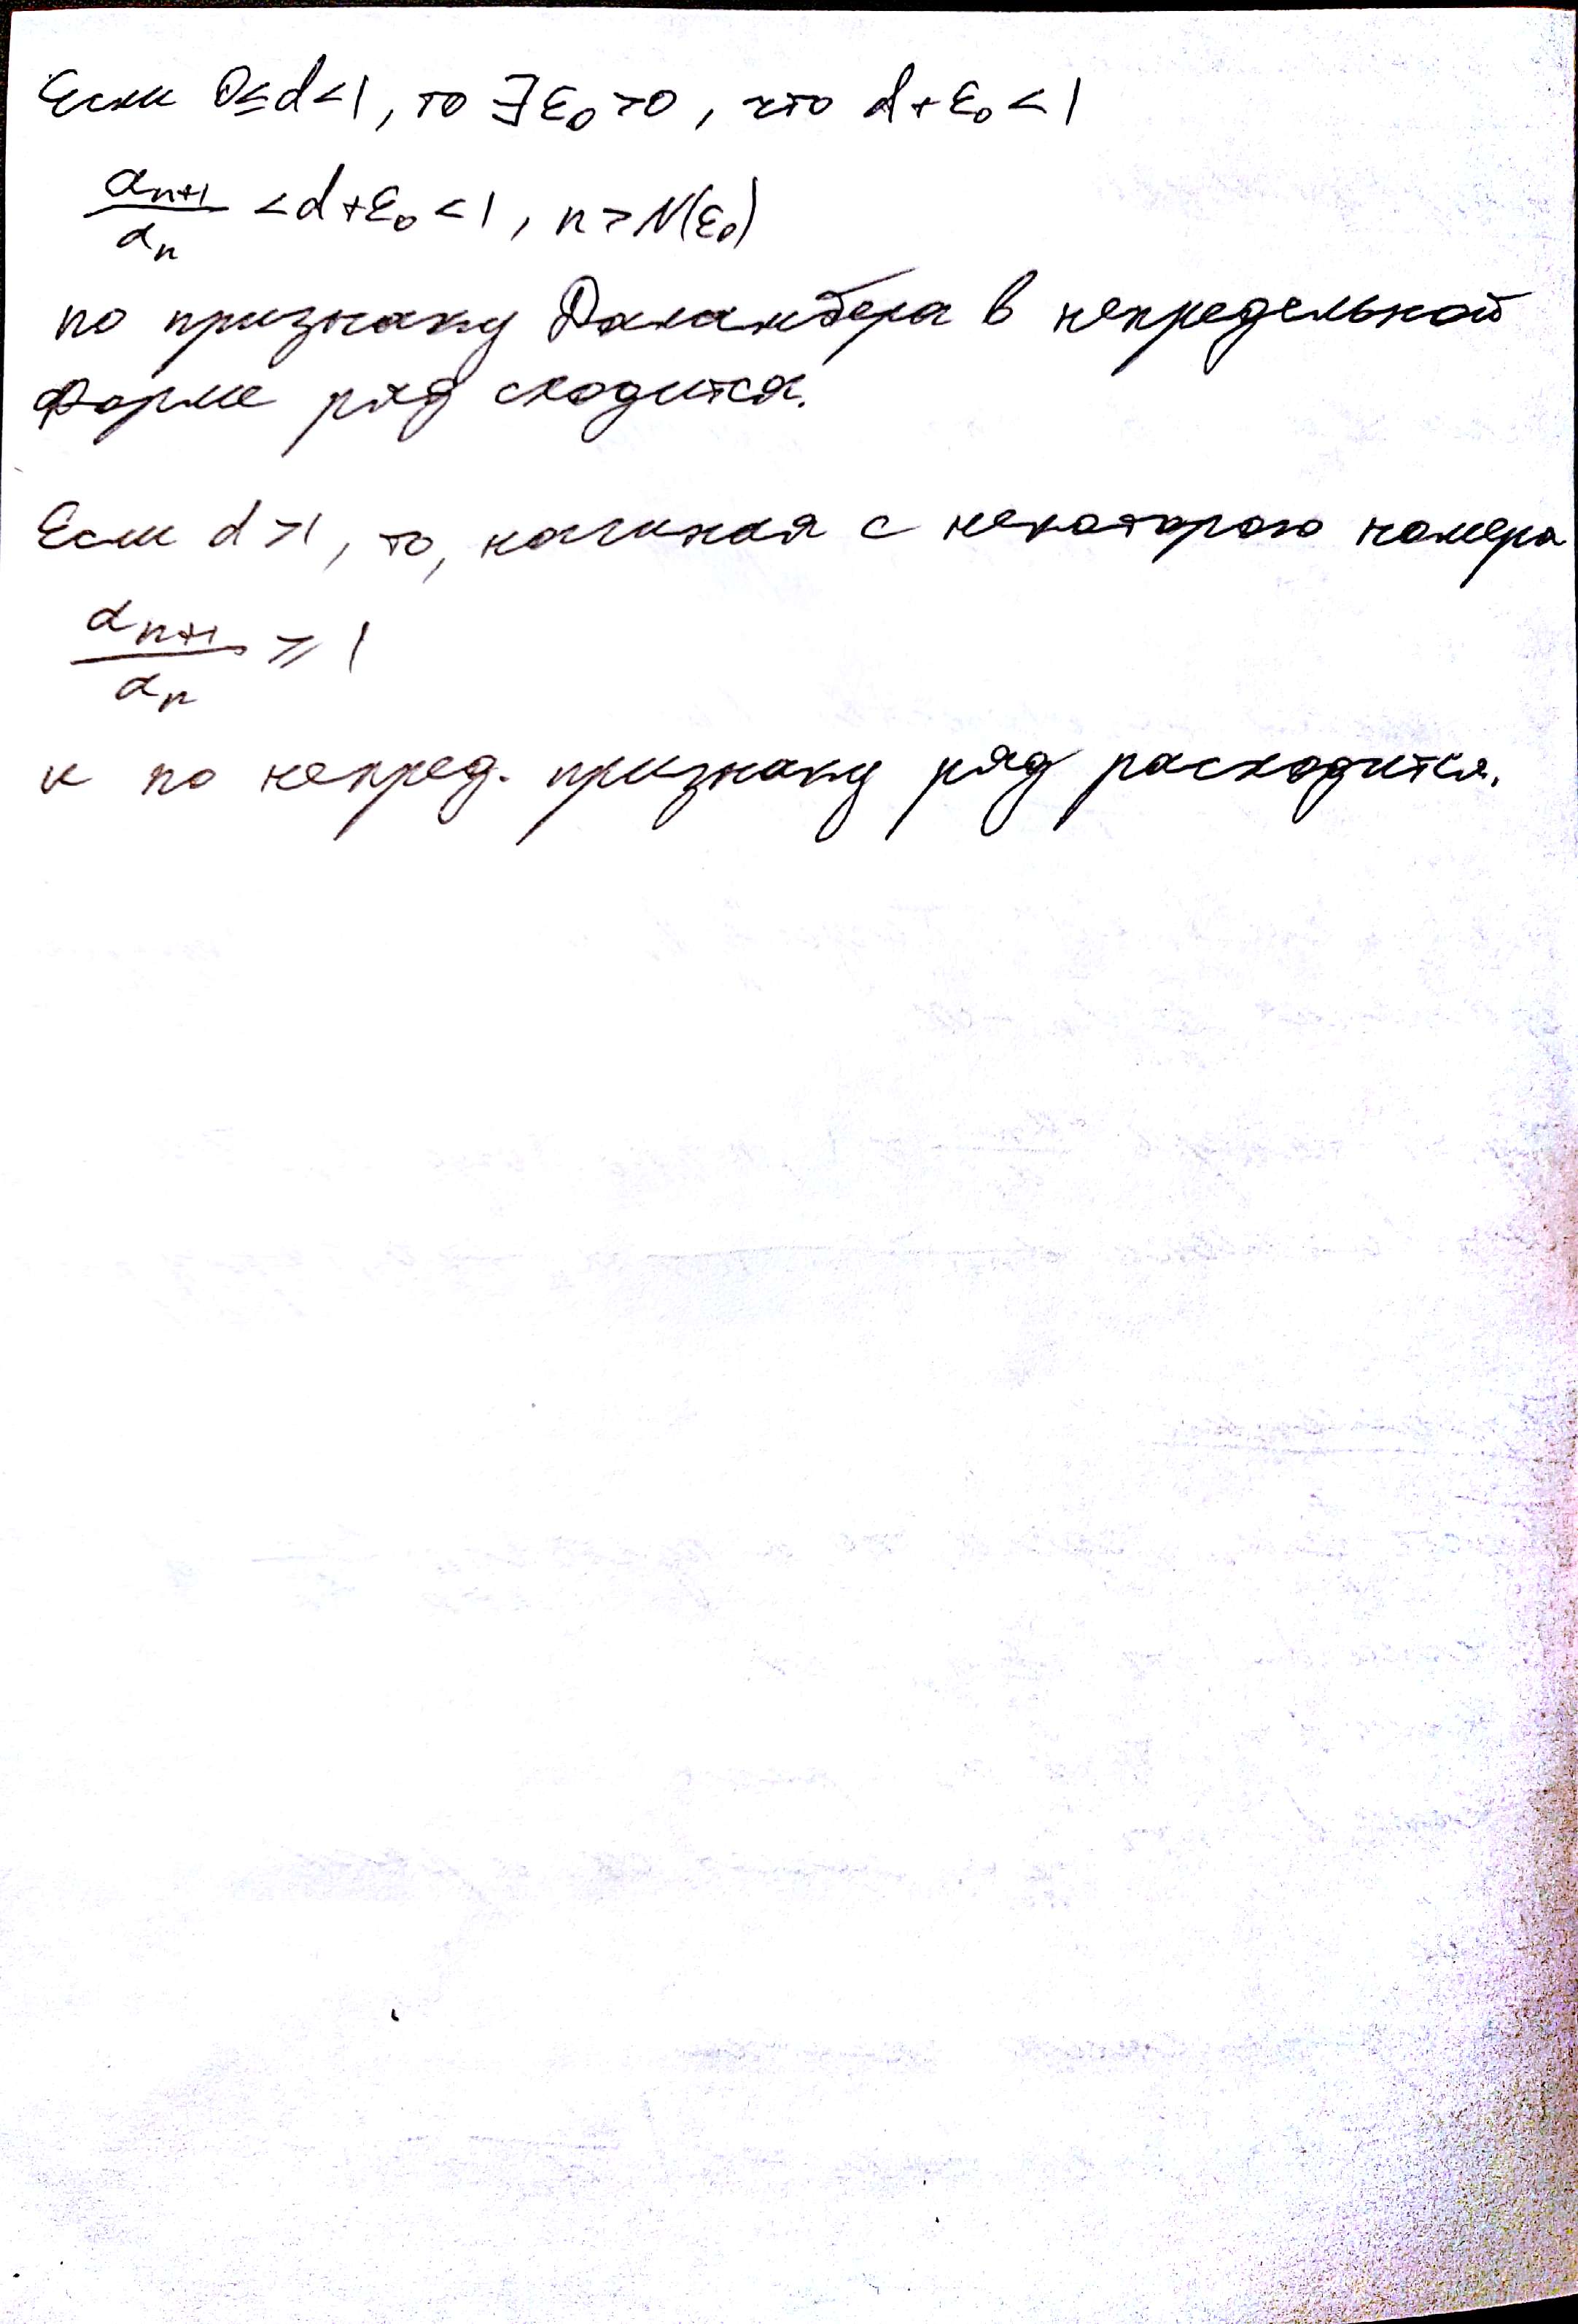 Если 0 ≤ d < 1, то ∃ ε₀ > 0, что d + ε₀ < 1
aₙ₊₁/aₙ < d + ε₀ < 1, n > N(ε₀)
по признаку Даламбера в непредельной
форме ряд сходится.
Если d > 1, то, начиная с некоторого номера
aₙ₊₁/aₙ ⩾ 1
и по непред. признаку ряд расходится.